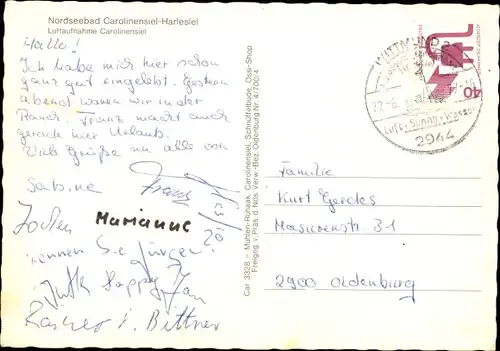 Nordseebad Carolinensiel-Harlesiel
Luftaufnahme Carolinensiel
Hallo!
Ich habe mich hier schon
ganz gut eingelebt. Gestern
abend waren wir in der
Franz macht auch
gerade hier Urlaub.
Viele Grüße an alle von
Sabine
Franz
Jochen
Marianne
Jürgen
Jutta
Bittner
Car 3328 - Mühlen-Rühaak, Carolinensiel, Schnuffelbude, Ossi-Shop
Freigeg. v. Präs. d. Nds. Verw.-Bez. Oldenburg Nr. 4/700/4
WITTMUND 2
Luft · Sonne · Wasser
2944
40
Familie
Kurt Gerdes
Masurenstr. 31
2900 Oldenburg